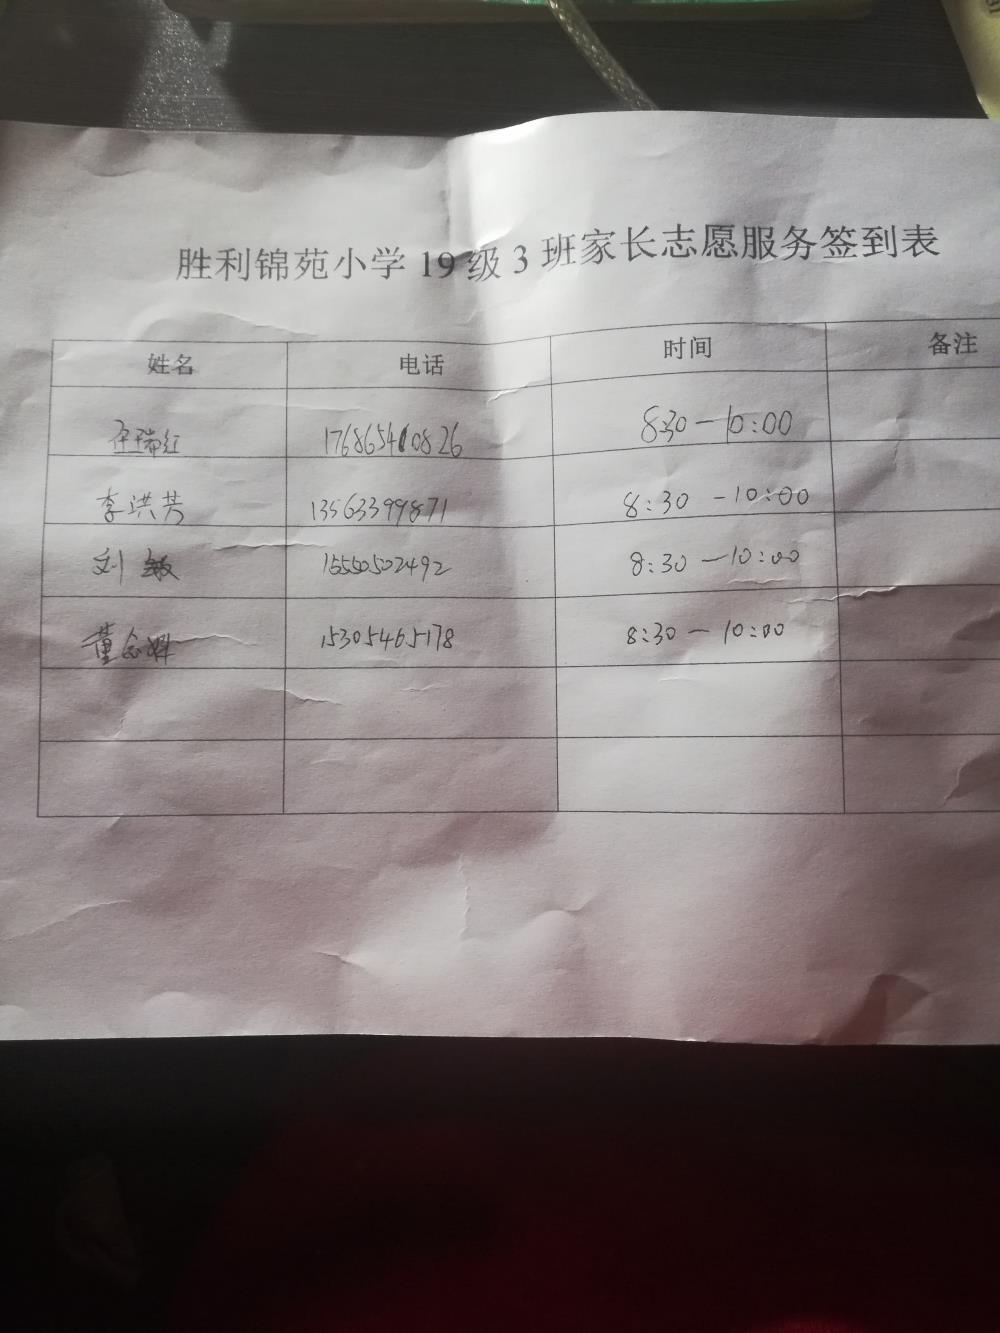 胜利锦苑小学 19 级 3 班家长志愿服务签到表
姓名 电话 时间 备注
任瑞红 17686540826 8:30—10:00
李洪芳 13563399871 8:30 -10:00
刘敏 15550502492 8:30 —10:00
董念 15305465178 8:30 — 10:00